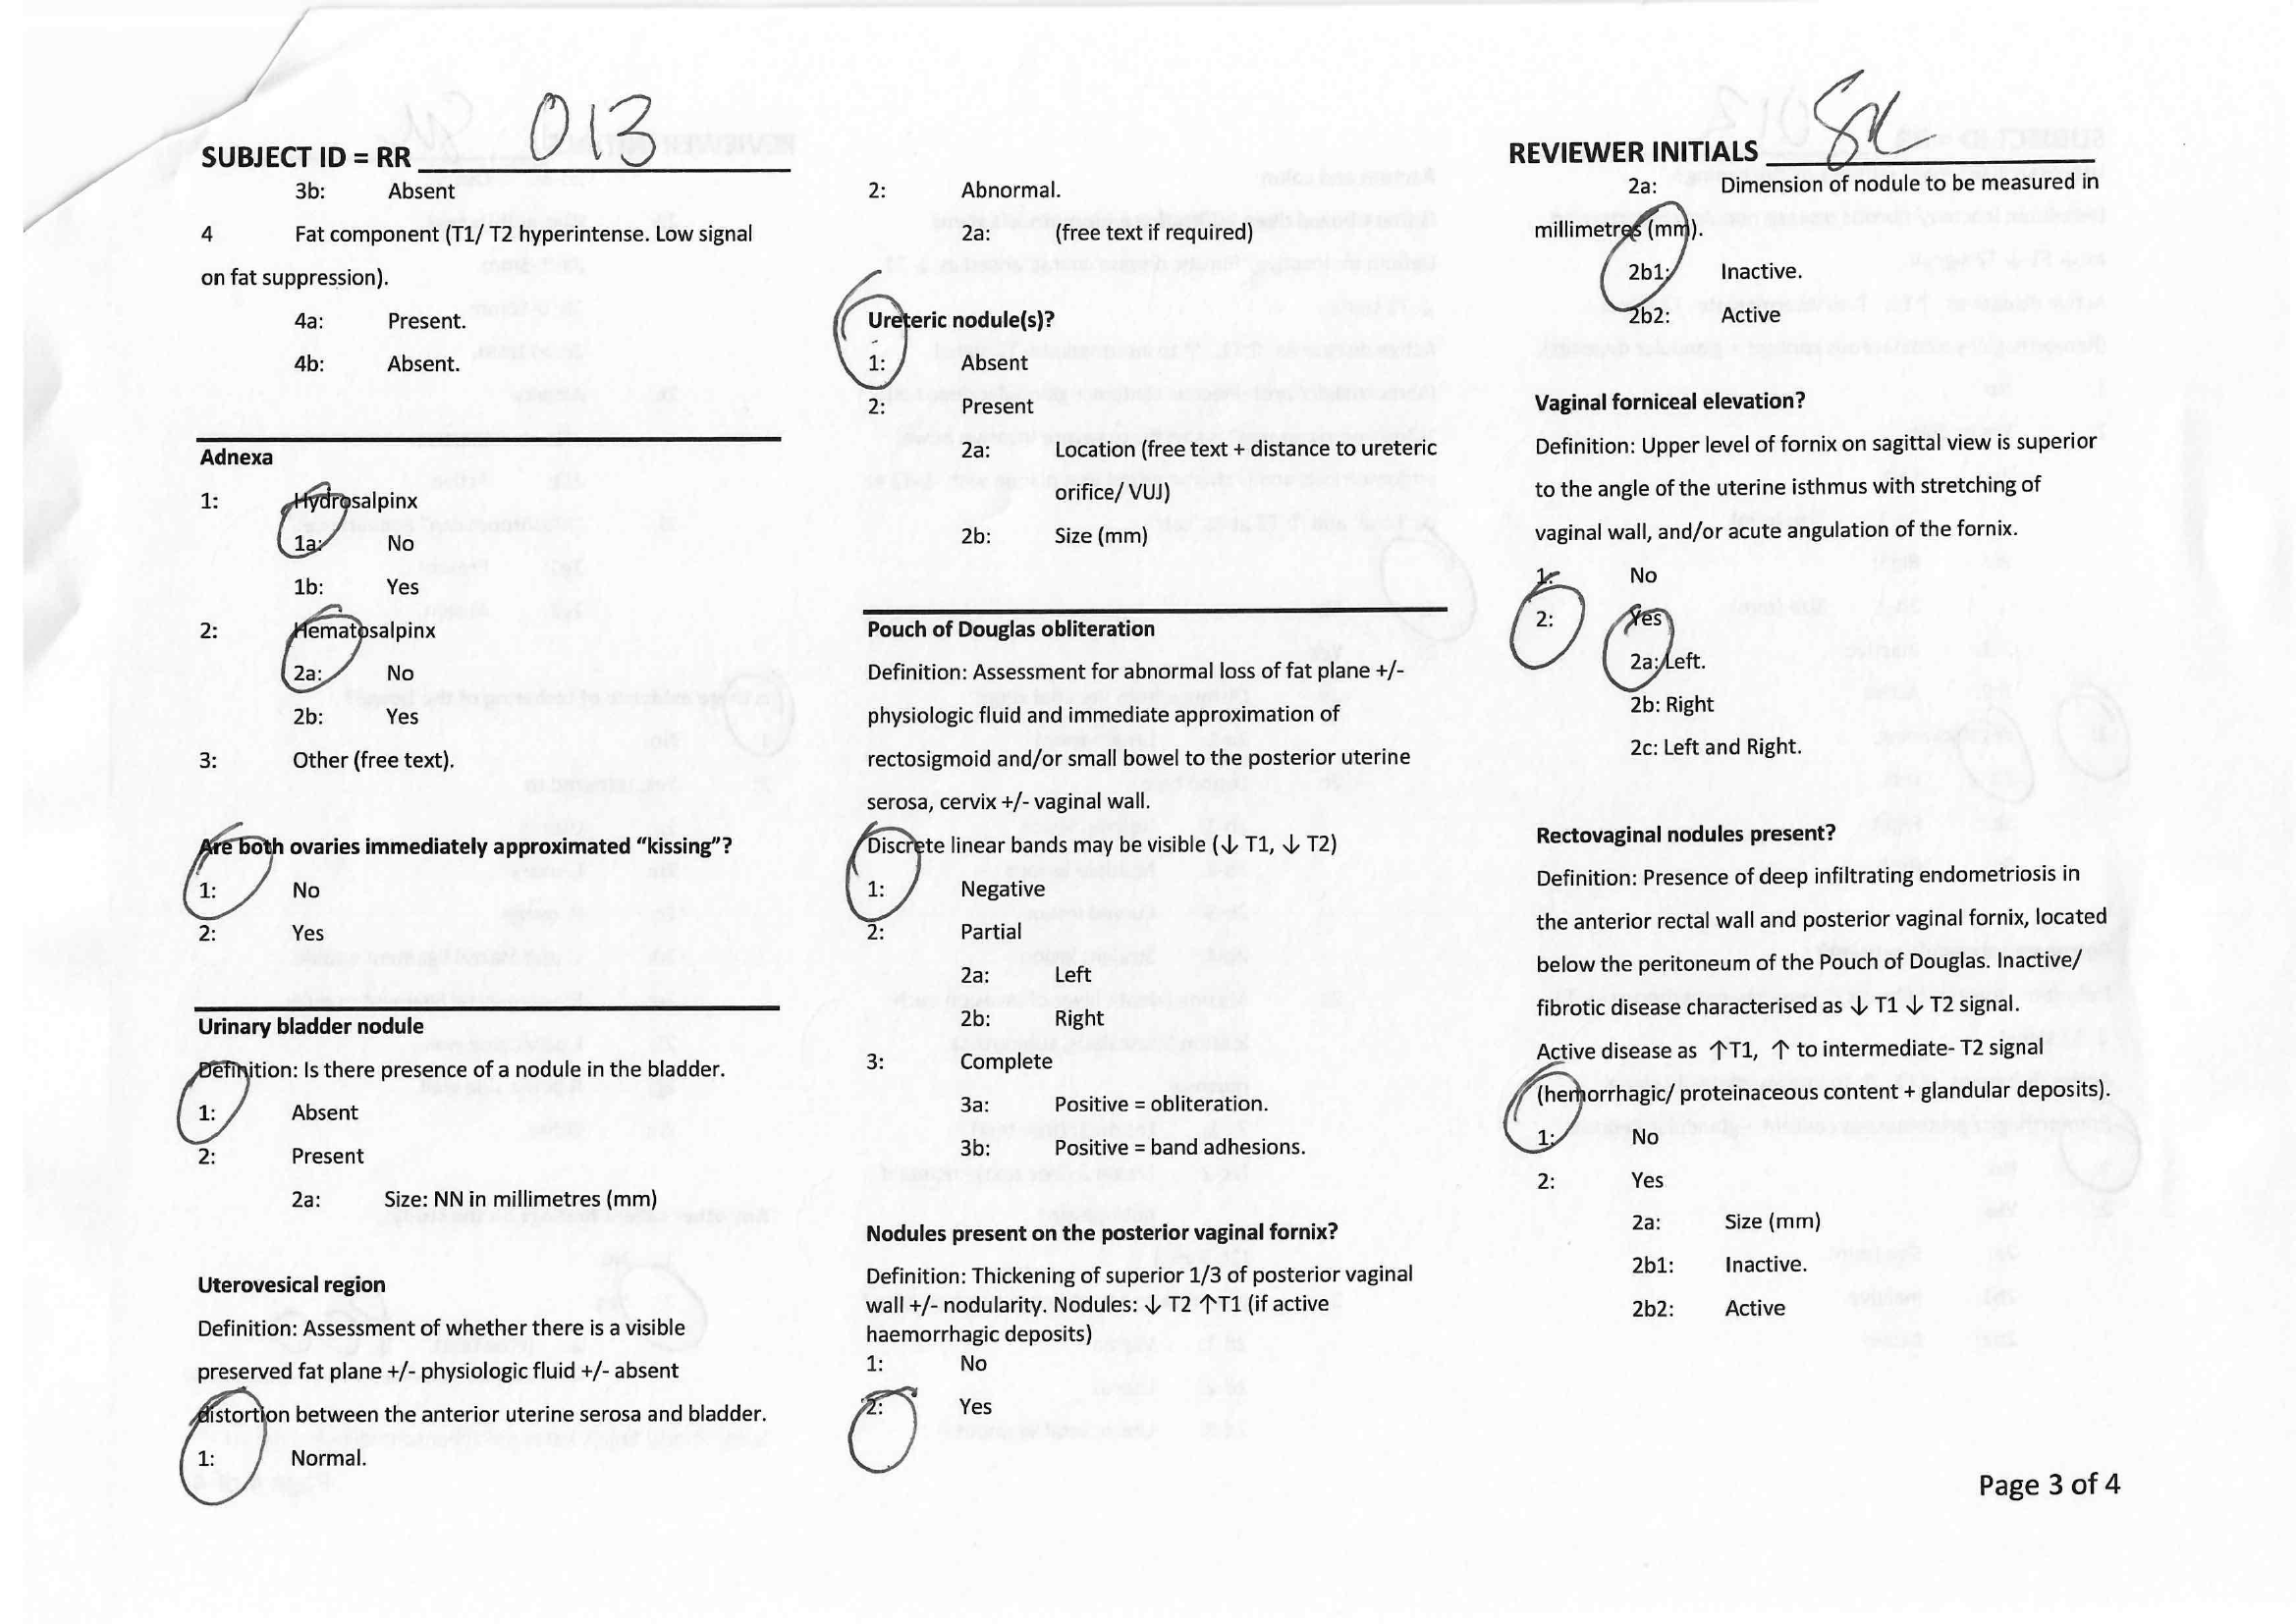 SUBJECT ID = RR 013
3b: Absent
4 Fat component (T1/ T2 hyperintense. Low signal
on fat suppression).
4a: Present.
4b: Absent.
Adnexa
1: Hydrosalpinx
1a: No
1b: Yes
2: Hematosalpinx
2a: No
2b: Yes
3: Other (free text).
Are both ovaries immediately approximated “kissing”?
1: No
2: Yes
Urinary bladder nodule
Definition: Is there presence of a nodule in the bladder.
1: Absent
2: Present
2a: Size: NN in millimetres (mm)
Uterovesical region
Definition: Assessment of whether there is a visible
preserved fat plane +/- physiologic fluid +/- absent
distortion between the anterior uterine serosa and bladder.
1: Normal.
2: Abnormal.
2a: (free text if required)
Ureteric nodule(s)?
1: Absent
2: Present
2a: Location (free text + distance to ureteric
orifice/ VUJ)
2b: Size (mm)
Pouch of Douglas obliteration
Definition: Assessment for abnormal loss of fat plane +/-
physiologic fluid and immediate approximation of
rectosigmoid and/or small bowel to the posterior uterine
serosa, cervix +/- vaginal wall.
Discrete linear bands may be visible (↓ T1, ↓ T2)
1: Negative
2: Partial
2a: Left
2b: Right
3: Complete
3a: Positive = obliteration.
3b: Positive = band adhesions.
Nodules present on the posterior vaginal fornix?
Definition: Thickening of superior 1/3 of posterior vaginal
wall +/- nodularity. Nodules: ↓ T2 ↑T1 (if active
haemorrhagic deposits)
1: No
2: Yes
REVIEWER INITIALS
2a: Dimension of nodule to be measured in
millimetres (mm).
2b1: Inactive.
2b2: Active
Vaginal forniceal elevation?
Definition: Upper level of fornix on sagittal view is superior
to the angle of the uterine isthmus with stretching of
vaginal wall, and/or acute angulation of the fornix.
1: No
2: Yes
2a: Left.
2b: Right
2c: Left and Right.
Rectovaginal nodules present?
Definition: Presence of deep infiltrating endometriosis in
the anterior rectal wall and posterior vaginal fornix, located
below the peritoneum of the Pouch of Douglas. Inactive/
fibrotic disease characterised as ↓ T1 ↓ T2 signal.
Active disease as ↑T1, ↑ to intermediate- T2 signal
(hemorrhagic/ proteinaceous content + glandular deposits).
1: No
2: Yes
2a: Size (mm)
2b1: Inactive.
2b2: Active
Page 3 of 4